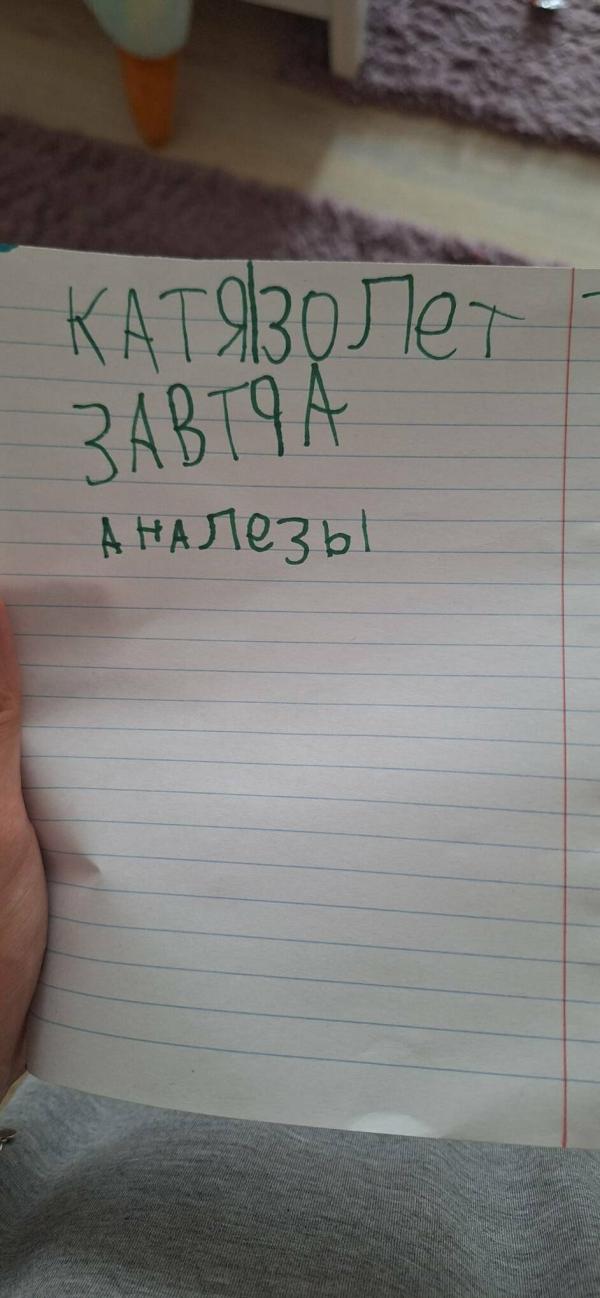 КАТЯ|ЗОЛЕТ
ЗАВТРА
АНАЛЕЗЫ